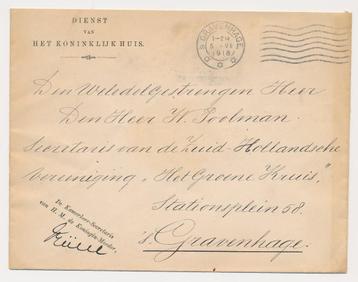 DIENST
VAN
HET KONINKLIJK HUIS.
'S GRAVENHAGE
1-2N
5 VI
1918
Den Weledelgestrengen Heer
Den Heer H. Poolman.
Secretaris van de Zuid-Hollandsche
Vereeniging „Het Groene Kruis",
Stationsplein 58.
's Gravenhage.
De Kamerheer-Secretaris
van H. M. de Koningin-Moeder,